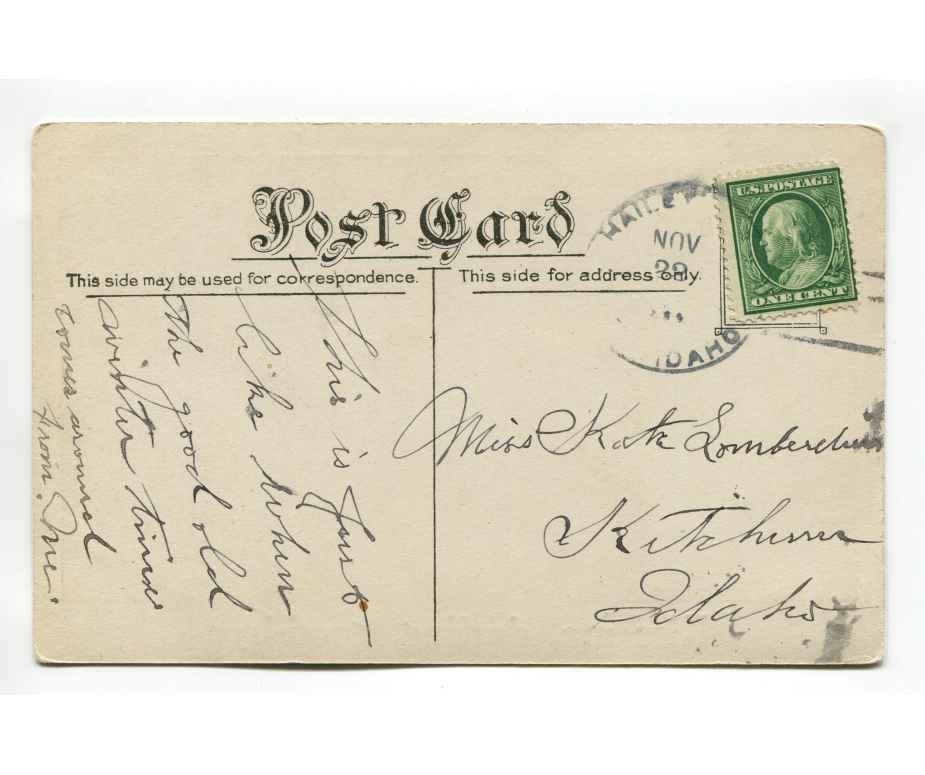 Post Card
This side may be used for correspondence.
This side for address only.
This is just
like when
the good old
winter time
comes around
From. Me.
HAILEY
NOV
29
IDAHO
U.S. POSTAGE
ONE CENT
Miss Kate
Ketchum
Idaho